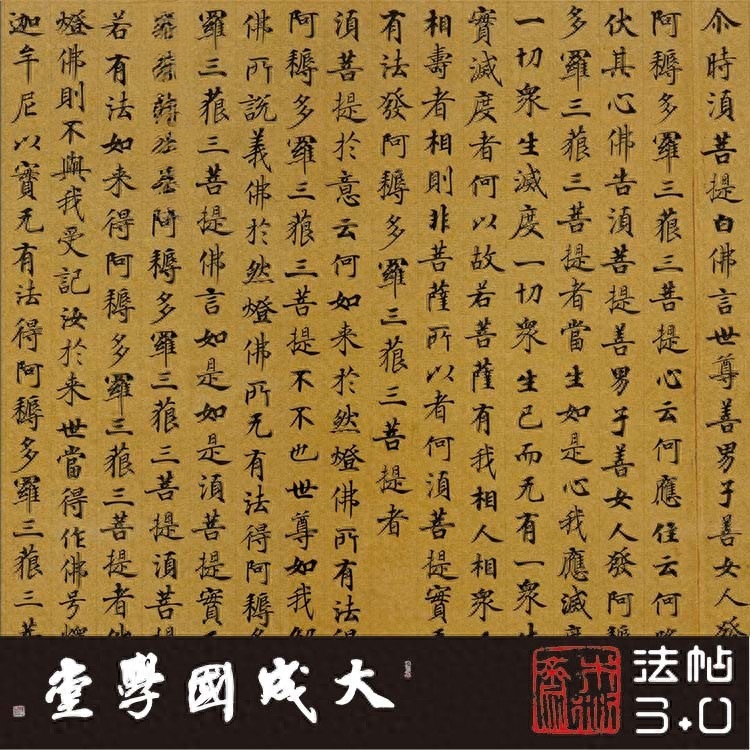 尒時湏菩提白佛言世尊善男子善女人發
阿耨多羅三藐三菩提心云何應住云何
伏其心佛告湏菩提善男子善女人發阿耨
多羅三藐三菩提者當生如是心我應滅度
一切衆生滅度一切衆生已而无有一衆生
實滅度者何以故若菩薩有我相人相衆
相壽者相則非菩薩所以者何湏菩提實
有法發阿耨多羅三藐三菩提者
湏菩提於意云何如来於然燈佛所有法得
阿耨多羅三藐三菩提不不也世尊如我解
佛所說義佛於然燈佛所无有法得阿耨多
羅三藐三菩提佛言如是如是湏菩提實无
阿耨多羅三藐三菩提湏菩提
若有法如来得阿耨多羅三藐三菩提者
燈佛則不與我受記汝於来世當得作佛号釋
迦牟尼以實无有法得阿耨多羅三藐三菩
大成國學堂
法帖
3.0